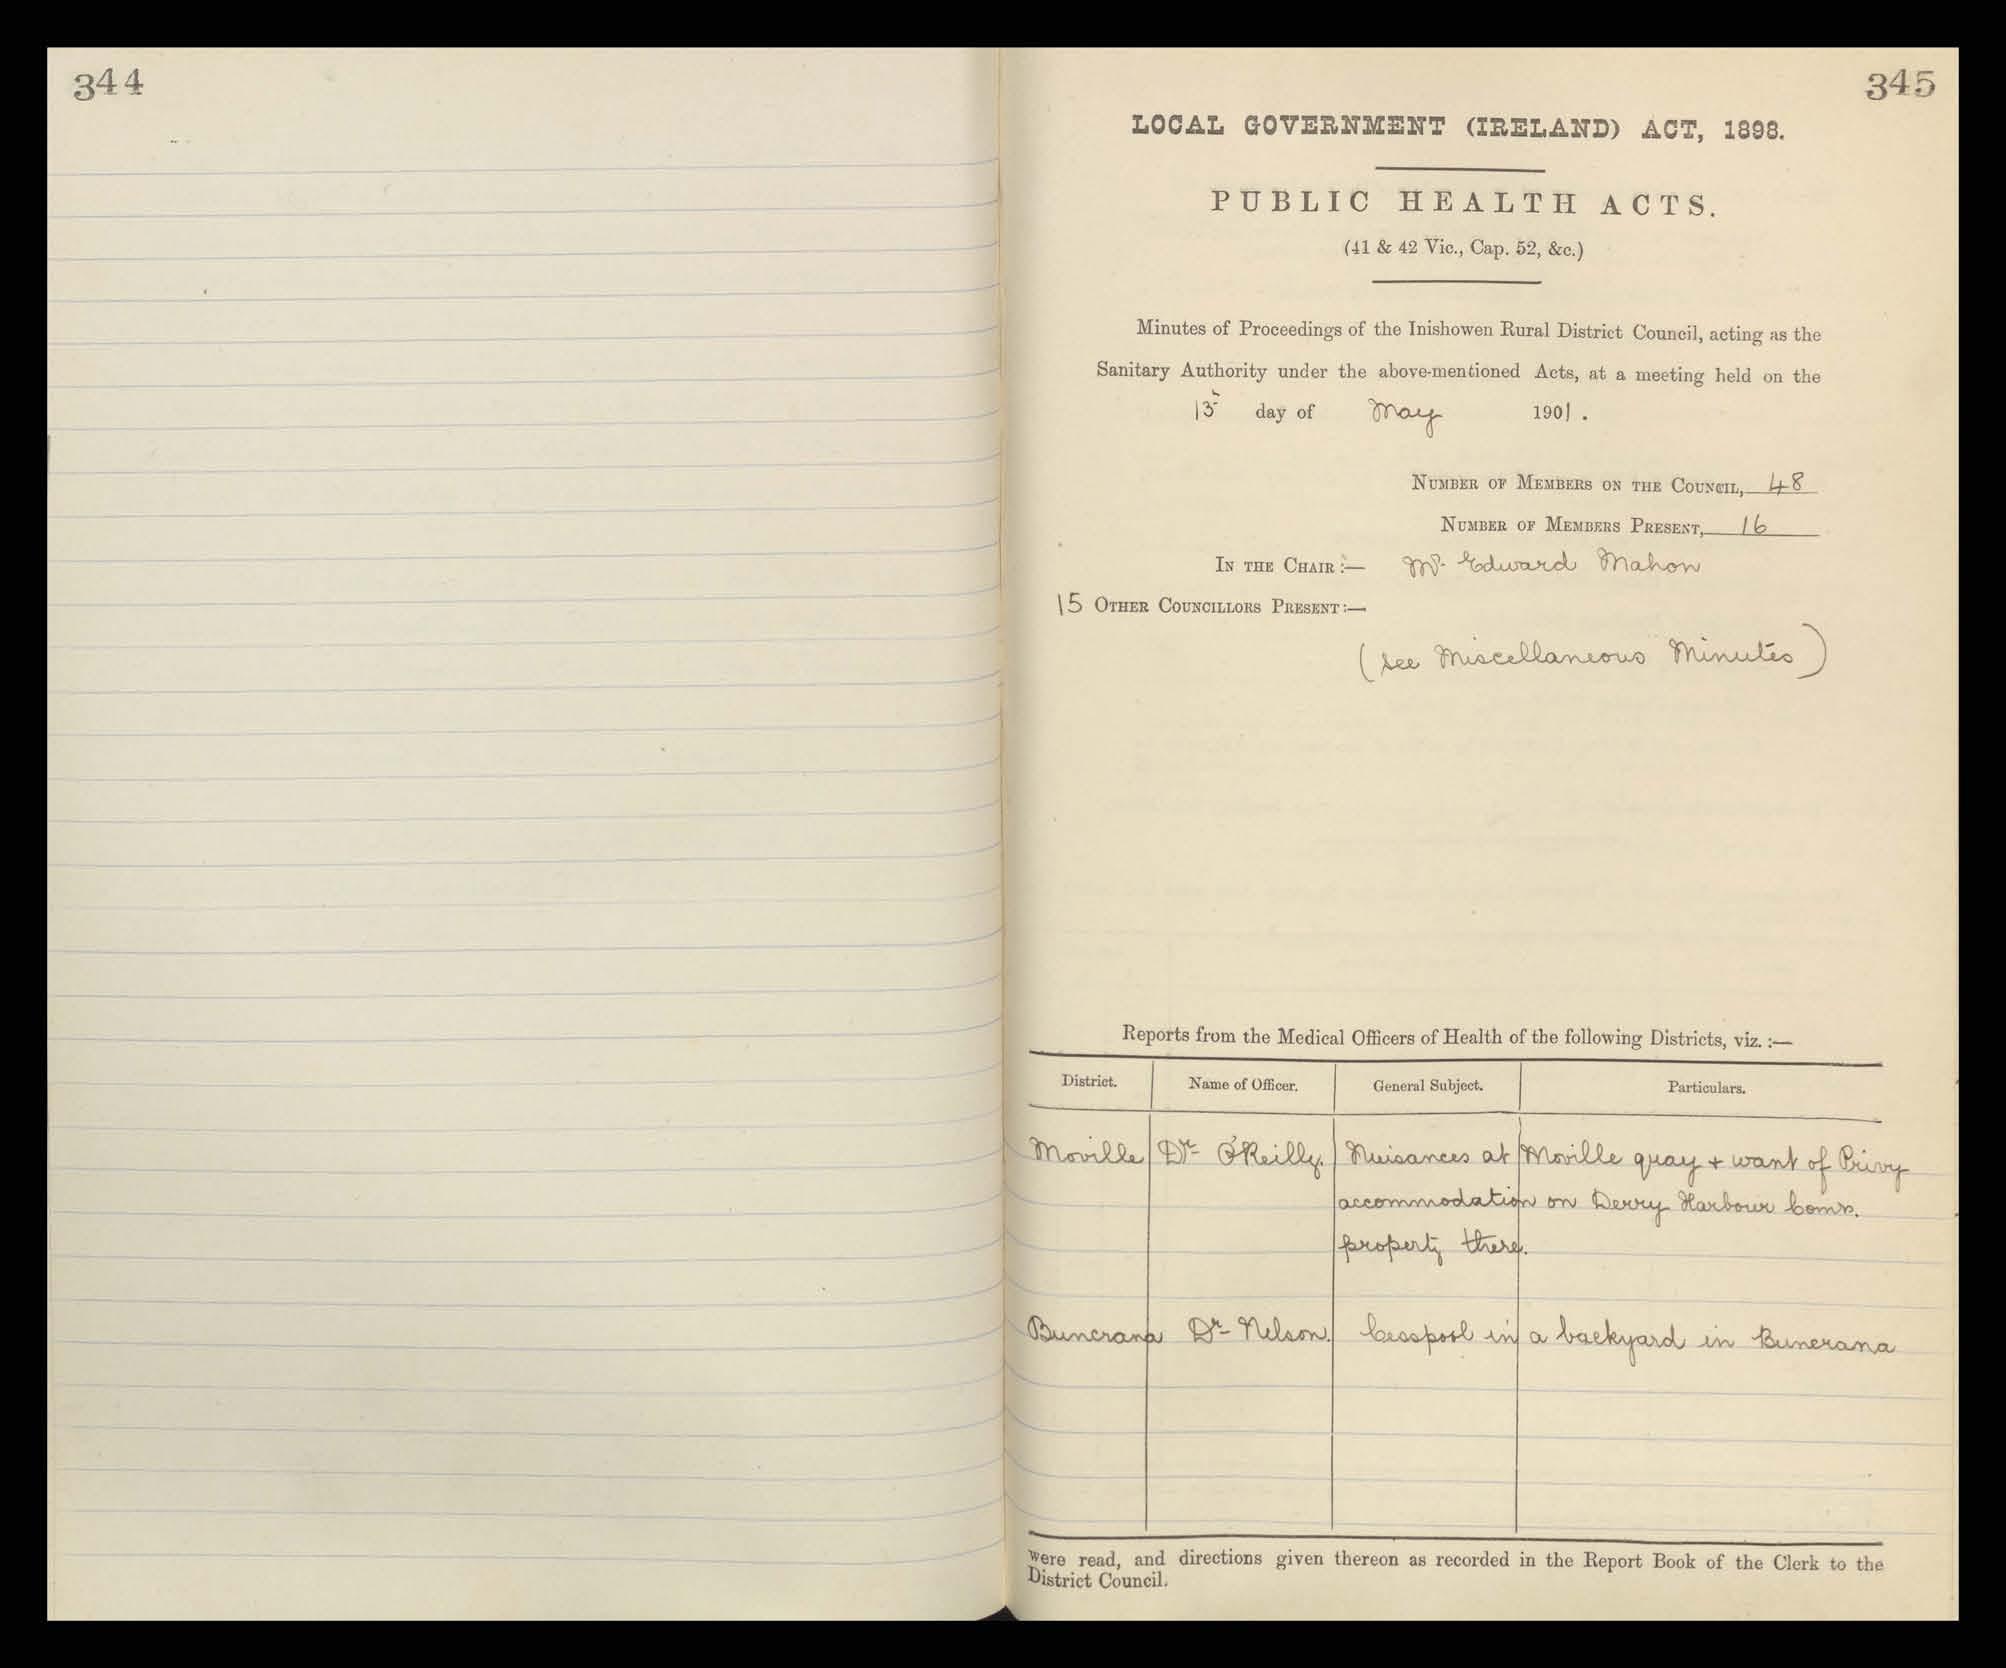 344
345
LOCAL GOVERNMENT (IRELAND) ACT, 1898.
PUBLIC HEALTH ACTS.
(41 & 42 Vic., Cap. 52, &c.)
Minutes of Proceedings of the Inishowen Rural District Council, acting as the
Sanitary Authority under the above-mentioned Acts, at a meeting held on the
13 day of May 1901.
NUMBER OF MEMBERS ON THE COUNCIL, 48
NUMBER OF MEMBERS PRESENT, 16
IN THE CHAIR :— Mr. Edward Mahon
15 OTHER COUNCILLORS PRESENT :—
(see Miscellaneous Minutes)
Reports from the Medical Officers of Health of the following Districts, viz. :—
District. Name of Officer. General Subject. Particulars.
Moville Dr O'Reilly. Nuisances at Moville quay + want of Privy
accommodation on Derry Harbour Comrs.
property there.
Buncrana Dr Nelson. Cesspool in a backyard in Buncrana
were read, and directions given thereon as recorded in the Report Book of the Clerk to the
District Council.